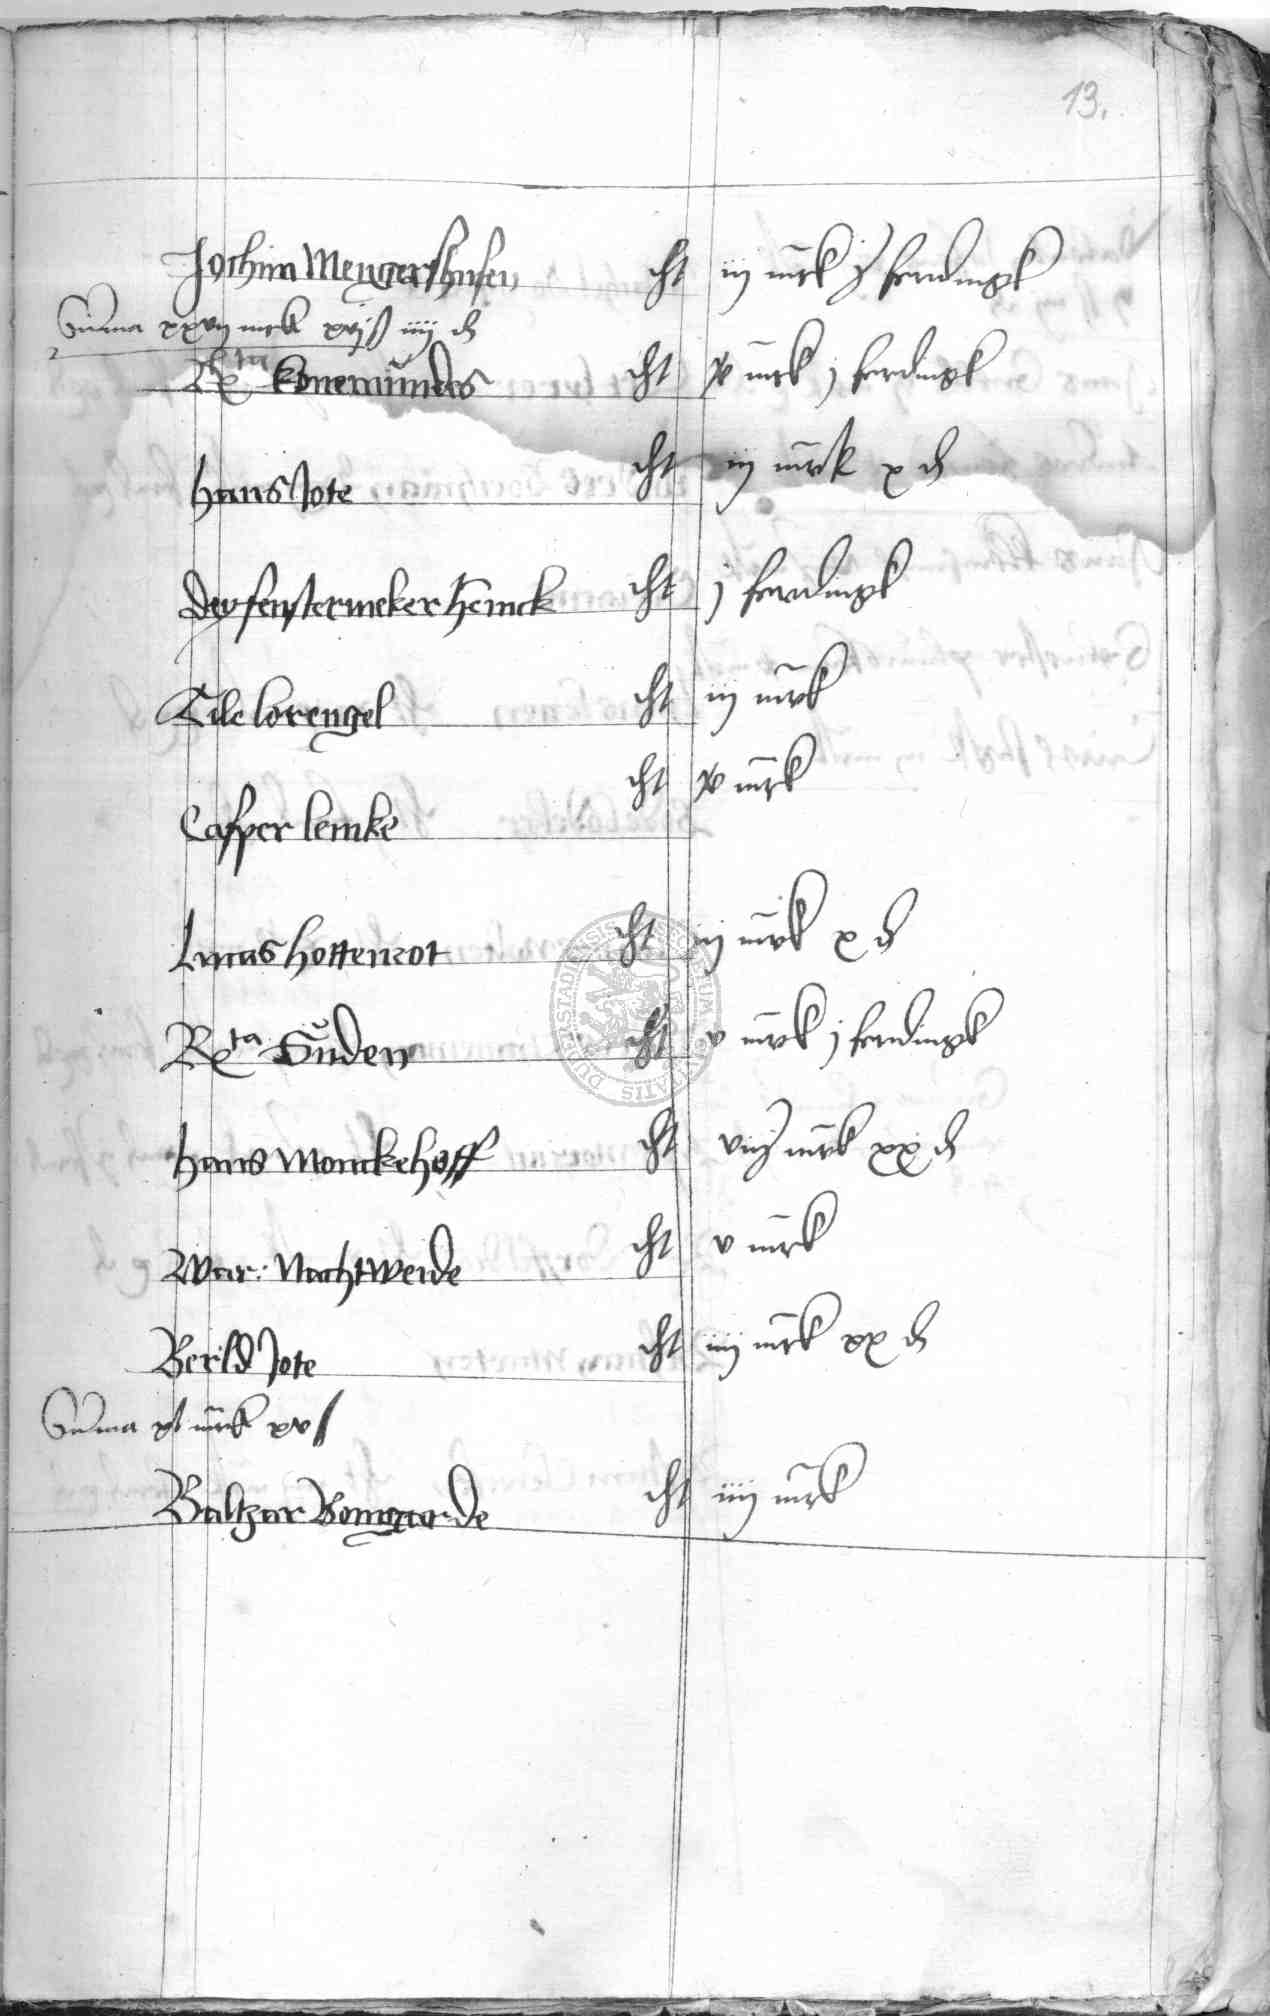 13.
Jochim Mengershusen cht iij mrk j ferdingk
Summa xxvij mrk xvijß iiij d
Rta Konemundes cht x mrk j ferdingk
Hans Jote cht iij mrk x d
De fenstermeker Heinck cht j ferdingk
Tile lorengel cht iij mrk
Casper lemke cht x mrk
Lucas Hottenrot cht iij mrk x d
Rta Guden cht v mrk j ferdingk
Hans Monckehoff cht viij mrk xx d
War: Nachtweide cht v mrk
Berld Jote cht iiij mrk xx d
Summa xl mrk xvß
Baltzar Bomgarde cht iiij mrk